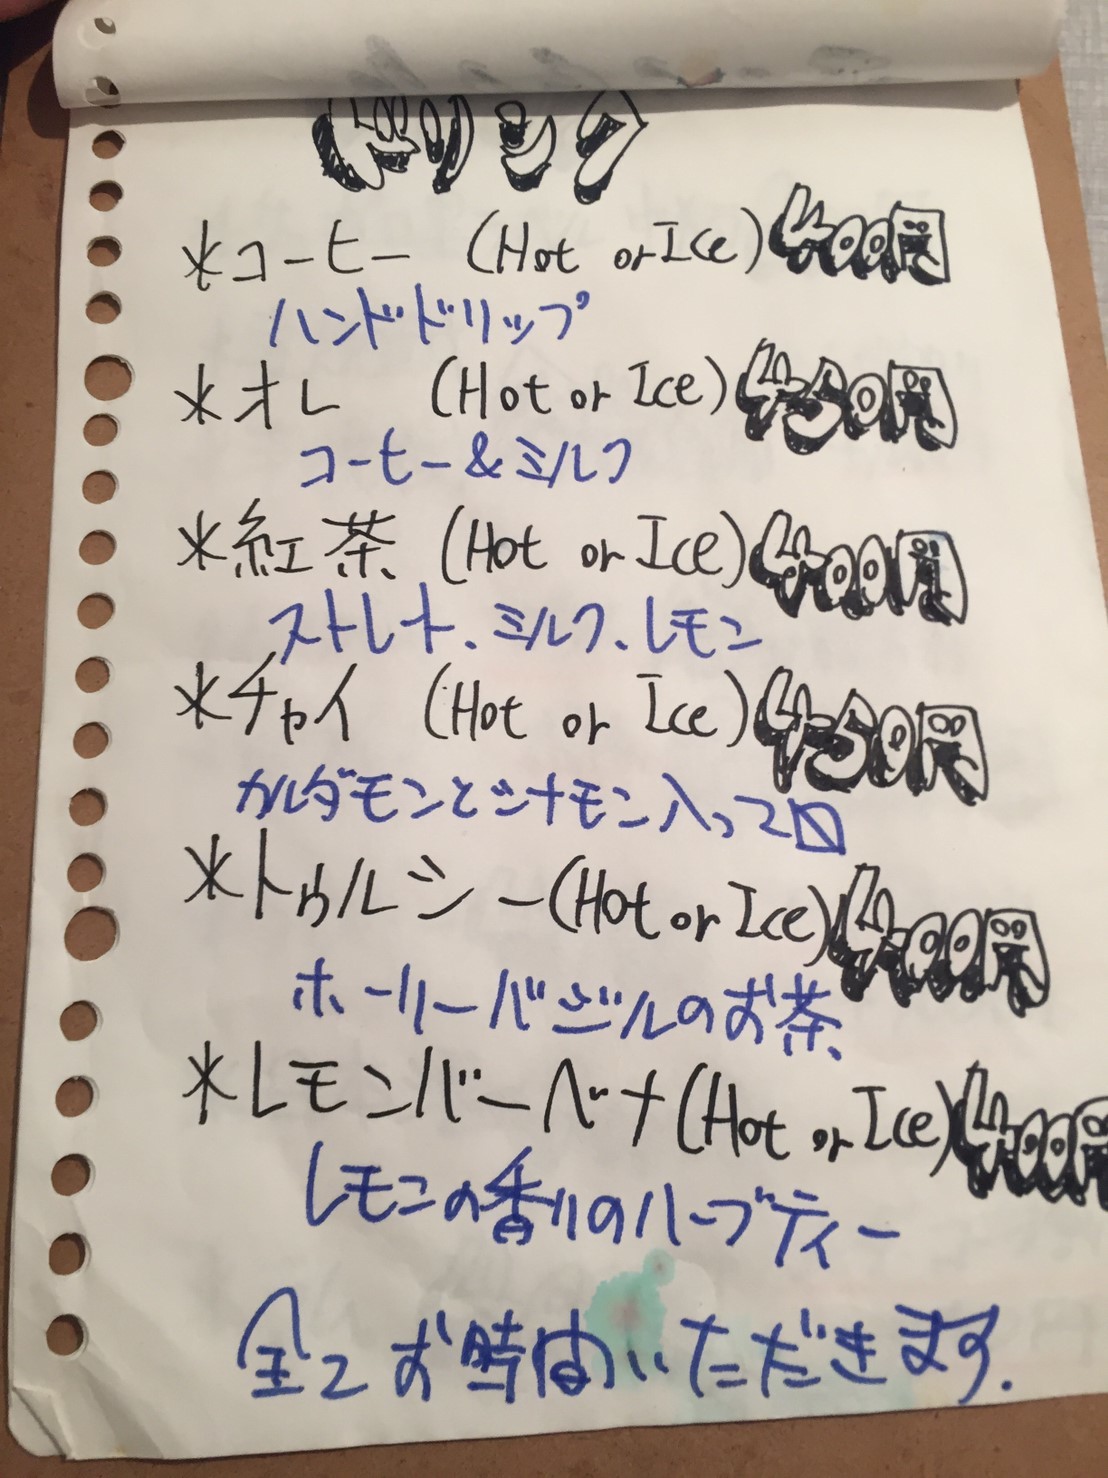 ドリンク
*コーヒー (Hot or Ice) 400円
ハンドドリップ
*オレ (Hot or Ice) 450円
コーヒー&ミルク
*紅茶 (Hot or Ice) 400円
ストレート、ミルク、レモン
*チャイ (Hot or Ice) 450円
カルダモンとシナモン入って
*トゥルシー (Hot or Ice) 400円
ホーリーバジルのお茶
*レモンバーベナ (Hot or Ice) 400円
レモンの香りのハーブティー
全てお時間いただきます.